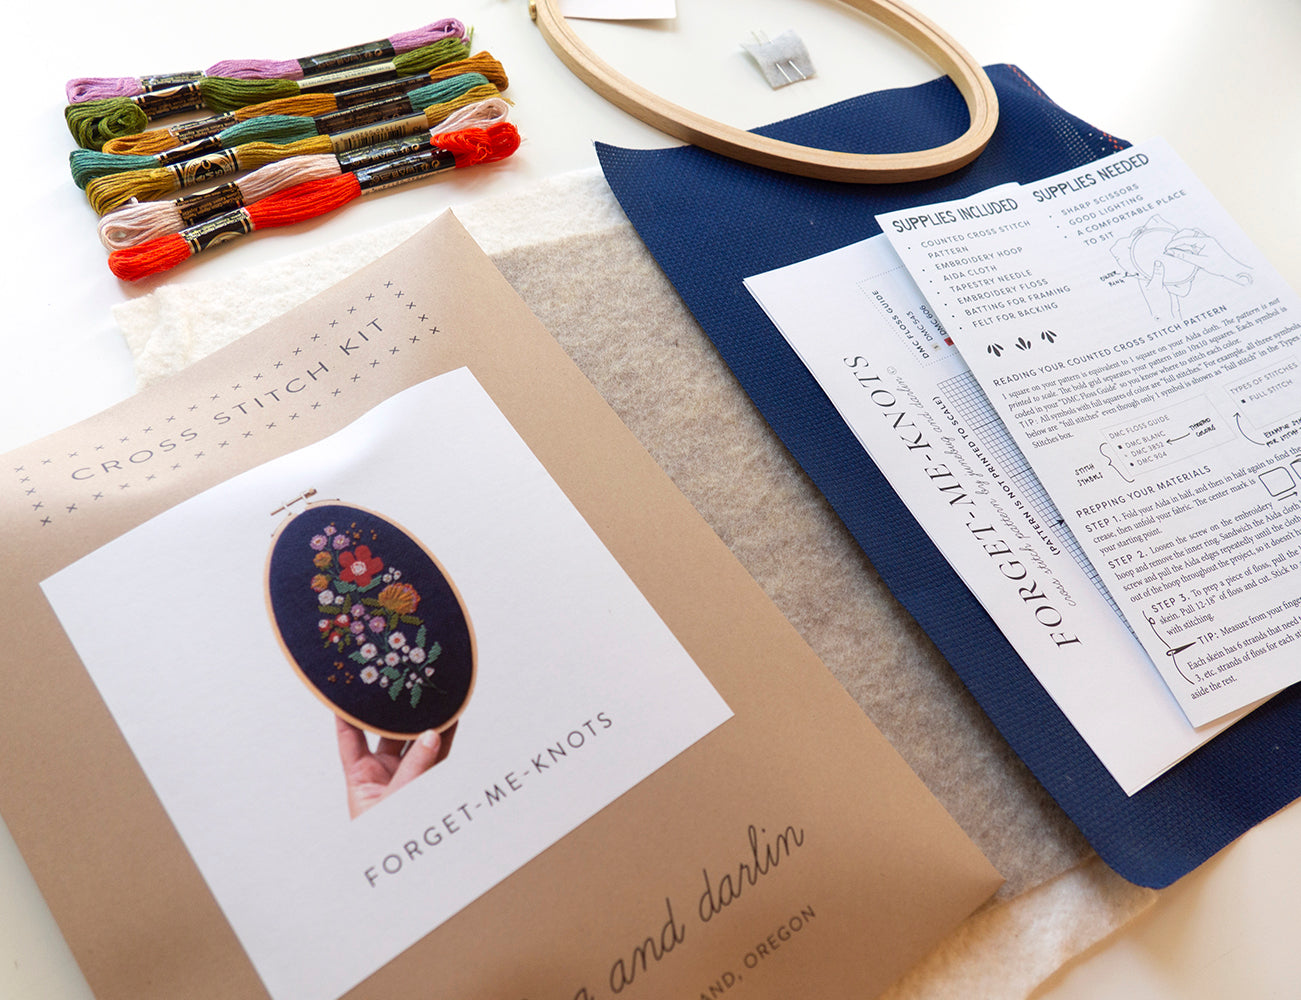 CROSS STITCH KIT
FORGET-ME-KNOTS
and darlin
AND, OREGON
DMC FLOSS GUIDE
DMC 543
DMC 606
FORGET-ME-KNOTS
cross stitch pattern by junebug and darlin ©
(PATTERN IS NOT PRINTED TO SCALE)
SUPPLIES INCLUDED
• COUNTED CROSS STITCH
PATTERN
• EMBROIDERY HOOP
• AIDA CLOTH
• TAPESTRY NEEDLE
• EMBROIDERY FLOSS
• BATTING FOR FRAMING
• FELT FOR BACKING
SUPPLIES NEEDED
• SHARP SCISSORS
• GOOD LIGHTING
• A COMFORTABLE PLACE
TO SIT
READING YOUR COUNTED CROSS STITCH PATTERN
1 square on your pattern is equivalent to 1 square on your Aida cloth. The pattern is not
printed to scale. The bold grid separates your pattern into 10x10 squares. Each symbol is
coded in your "DMC Floss Guide" so you know where to stitch each color.
TIP: All symbols with full squares of color are "full stitches." For example, all three symbols
below are "full stitches" even though only 1 symbol is shown as "full stitch" in the Types
Stitches box.
DMC FLOSS GUIDE
DMC BLANC
DMC 3852
DMC 904
STITCH
SYMBOLS
THREAD
COLORS
TYPES OF STITCHES
FULL STITCH
PREPPING YOUR MATERIALS
STEP 1. Fold your Aida in half, and then in half again to find the
crease, then unfold your fabric. The center mark is
your starting point.
STEP 2. Loosen the screw on the embroidery
hoop and remove the inner ring. Sandwich the Aida cloth
screw and pull the Aida edges repeatedly until the cloth
out of the hoop throughout the project, so it doesn't
STEP 3. To prep a piece of floss, pull the
skein. Pull 12-18" of floss and cut. Stick to
with stitching.
TIP: Measure from your finger
Each skein has 6 strands that need
3, etc. strands of floss for each
aside the rest.